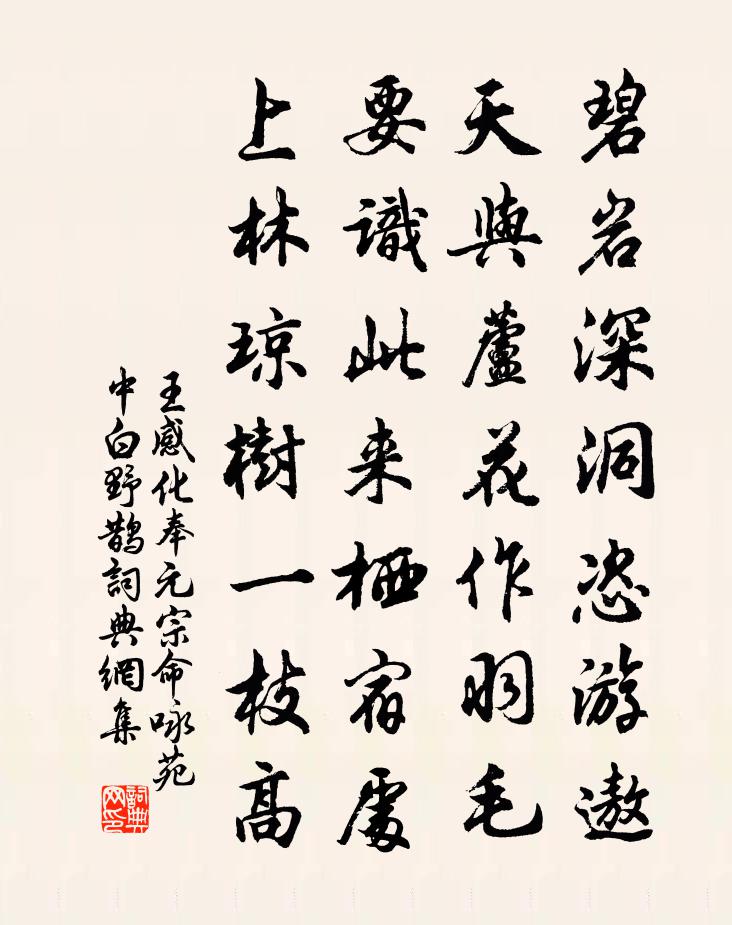 碧岩深洞恣游遨
天與蘆花作羽毛
要識此来栖宿處
上林琼樹一枝高
王感化奉元宗命咏苑
中白野鵲詞典網集
詞典网印